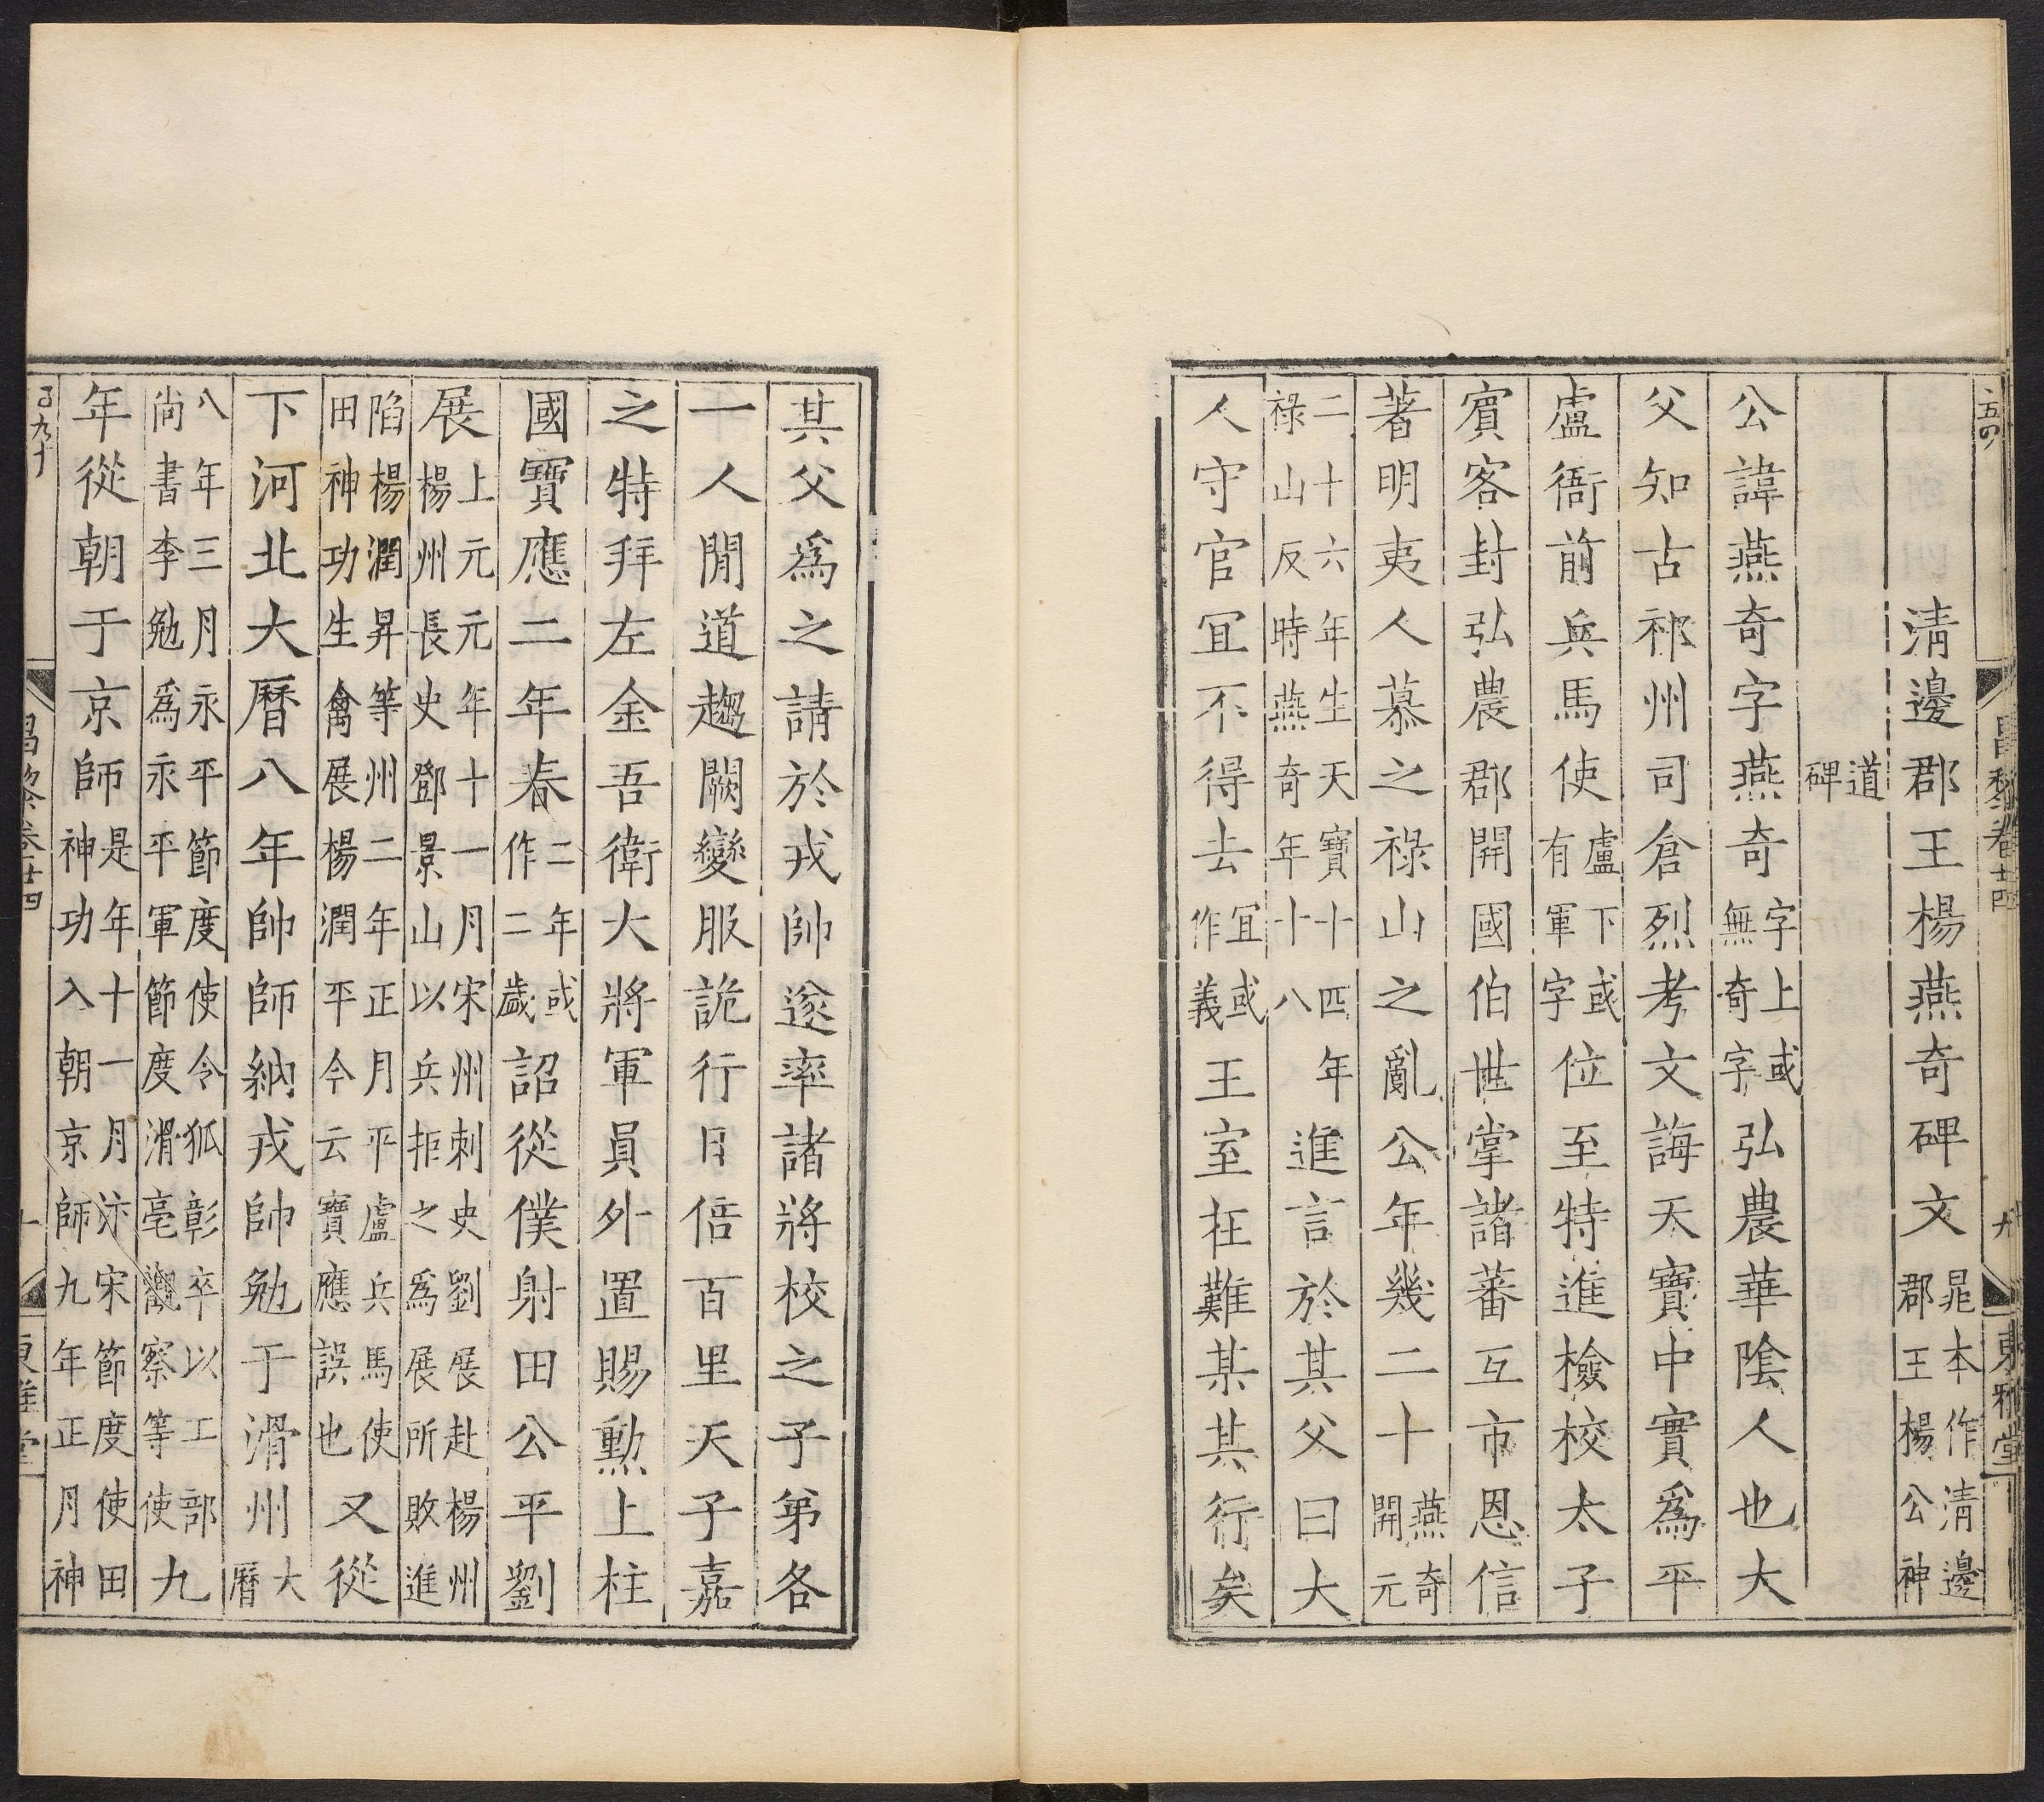 清邊郡王楊燕奇碑文晁本作清邊郡王楊公神
道碑
公諱燕奇字燕奇字上或無奇字弘農華陰人也大
父知古祁州司倉烈考文誨天寶中實爲平
盧衙前兵馬使盧下或有軍字位至特進檢校太子
賓客封弘農郡開國伯世掌諸蕃互市恩信
著明夷人慕之祿山之亂公年幾二十燕奇開元
二十六年生天寶十四年祿山反時燕奇年十八進言於其父曰大
人守官宜不得去宜或作義王室在難某其行矣
其父爲之請於戎帥遂率諸將校之子弟各
一人閒道趨闕變服詭行日倍百里天子嘉
之特拜左金吾衛大將軍員外置賜勳上柱
國寶應二年春二年或作二歲詔從僕射田公平劉
展上元元年十一月宋州刺史劉展赴楊州楊州長史鄧景山以兵拒之爲展所敗進
陷楊潤昇等州二年正月平盧兵馬使田神功生禽展楊潤平今云寶應誤也又從
下河北大曆八年帥師納戎帥勉于滑州大曆
八年三月永平節度使令狐彰卒以工部尚書李勉爲永平軍節度滑亳觀察等使九
年從朝于京師是年十一月汴宋節度使田神功入朝京師九年正月神
昌黎卷廿四
九
東雅堂